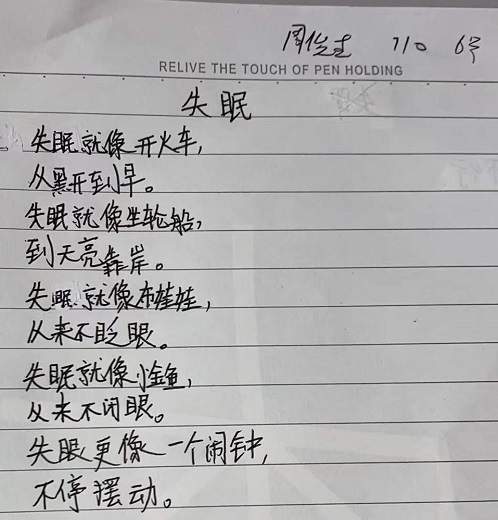 周俊圭 710 6号
RELIVE THE TOUCH OF PEN HOLDING
失眠
失眠就像开火车,
从黑开到早。
失眠就像坐轮船,
到天亮靠岸。
失眠就像布娃娃,
从来不眨眼。
失眠就像小金鱼,
从来不闭眼。
失眠更像一个闹钟,
不停摆动。